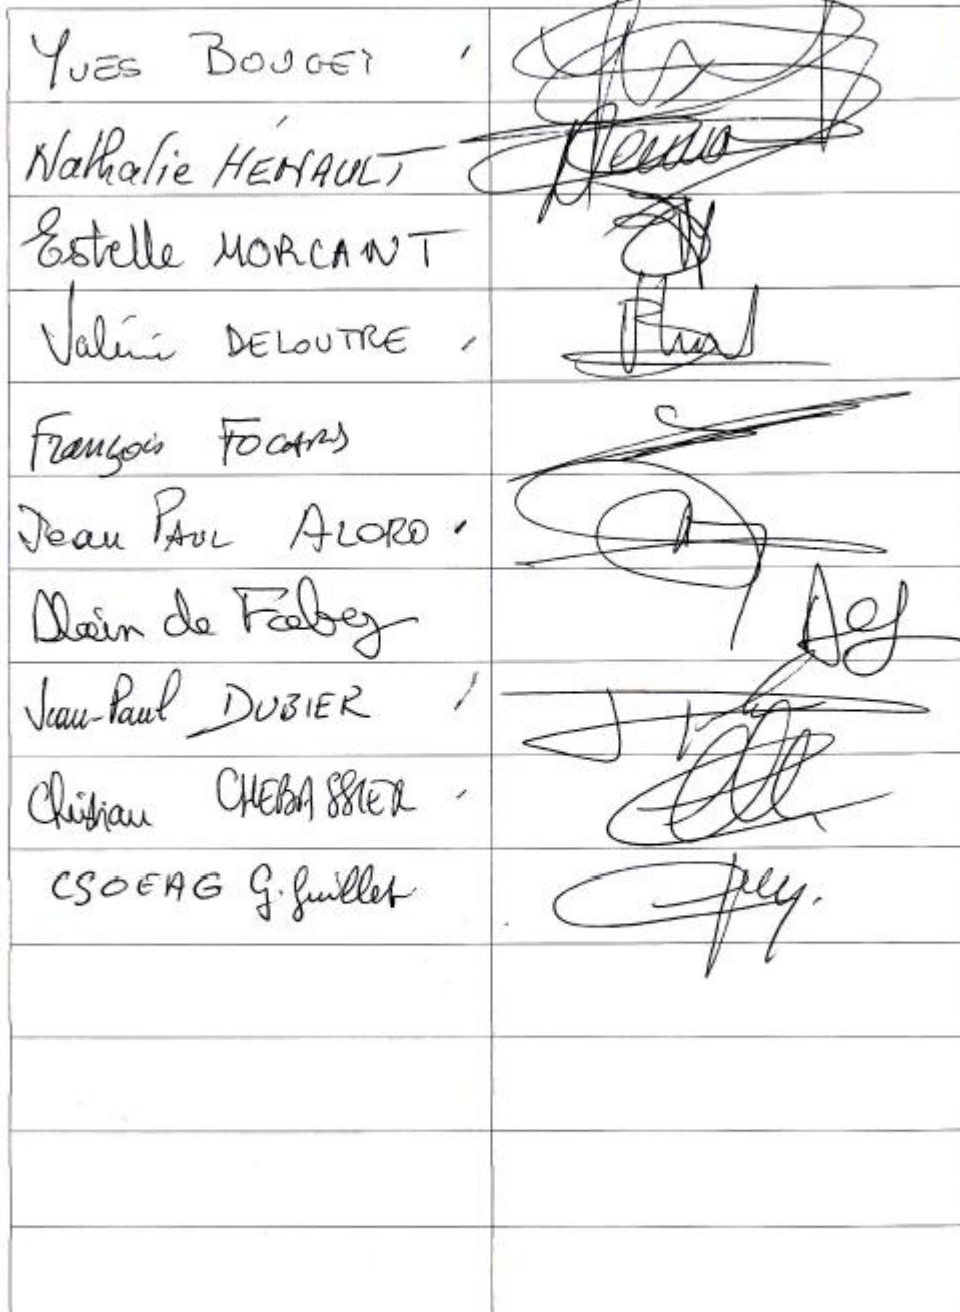 Yves BOUGET
Nathalie HÉNAULT
Estelle MORCANT
Valérie DELOUTRE
François FOCARD
Jean PAUL ALORO
Alain de
Jean-Paul DUBIER
Christian CHEBASSIER
CSOEAG G. Guillet